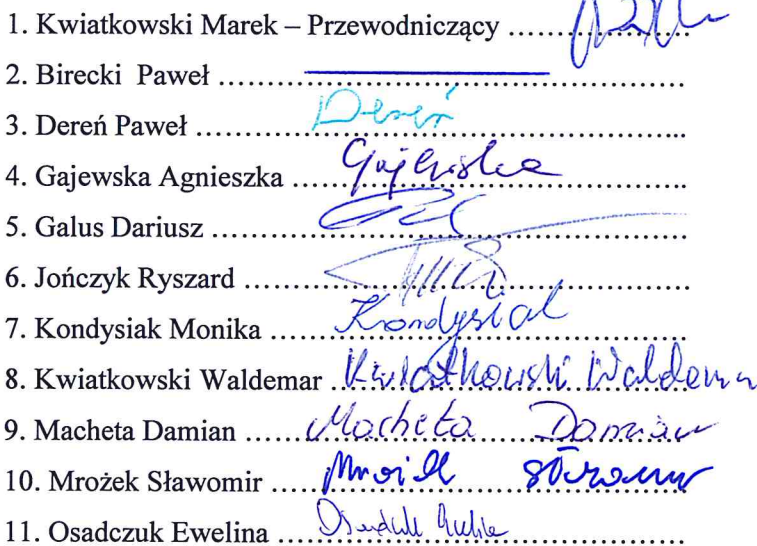 1. Kwiatkowski Marek – Przewodniczący ..................
2. Birecki Paweł ..................
3. Dereń Paweł .................. Dereń
4. Gajewska Agnieszka .................. Gajewska
5. Galus Dariusz ..................
6. Jończyk Ryszard ..................
7. Kondysiak Monika .................. Kondysiak
8. Kwiatkowski Waldemar .................. Kwiatkowski Waldemar
9. Macheta Damian .................. Macheta Damian
10. Mrożek Sławomir .................. Mrożek Sławomir
11. Osadczuk Ewelina ..................